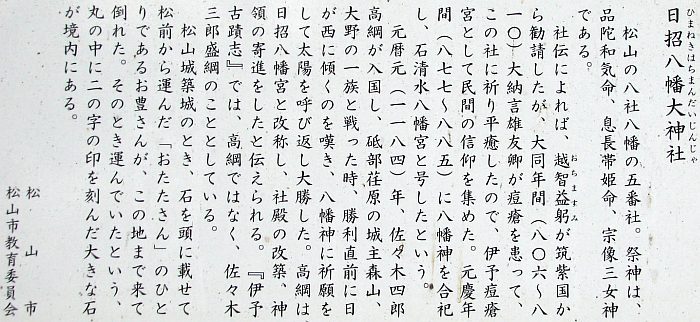 日招八幡大神社
ひまねきはちまんだいじんじゃ
松山の八社八幡の五番社。祭神は、
品陀和気命、息長帯姫命、宗像三女神
である。
社伝によれば、越智益躬が筑紫国か
おちますみ
ら勧請したが、大同年間（八〇六～八
一〇）大納言雄友卿が痘瘡を患って、
この社に祈り平癒したので、伊予痘瘡
宮として民間の信仰を集めた。元慶年
間（八七七～八八五）に八幡神を合祀
し、石清水八幡宮と号したという。
元暦元（一一八四）年、佐々木四郎
高綱が入国し、砥部荘原の城主森山、
大野の一族と戦った時、勝利直前に日
が西に傾くのを嘆き、八幡神に祈願を
して太陽を呼び返し大勝した。高綱は
日招八幡宮と改称し、社殿の改築、神
領の寄進をしたと伝えられる。『伊予
古蹟志』では、高綱ではなく、佐々木
三郎盛綱のこととしている。
松山城築城のとき、石を頭に載せて
松前から運んだ「おたたさん」のひと
りであるお豊さんが、この地まで来て
倒れた。そのとき運んでいたという、
丸の中に二の字の印を刻んだ大きな石
が境内にある。
松山市
松山市教育委員会